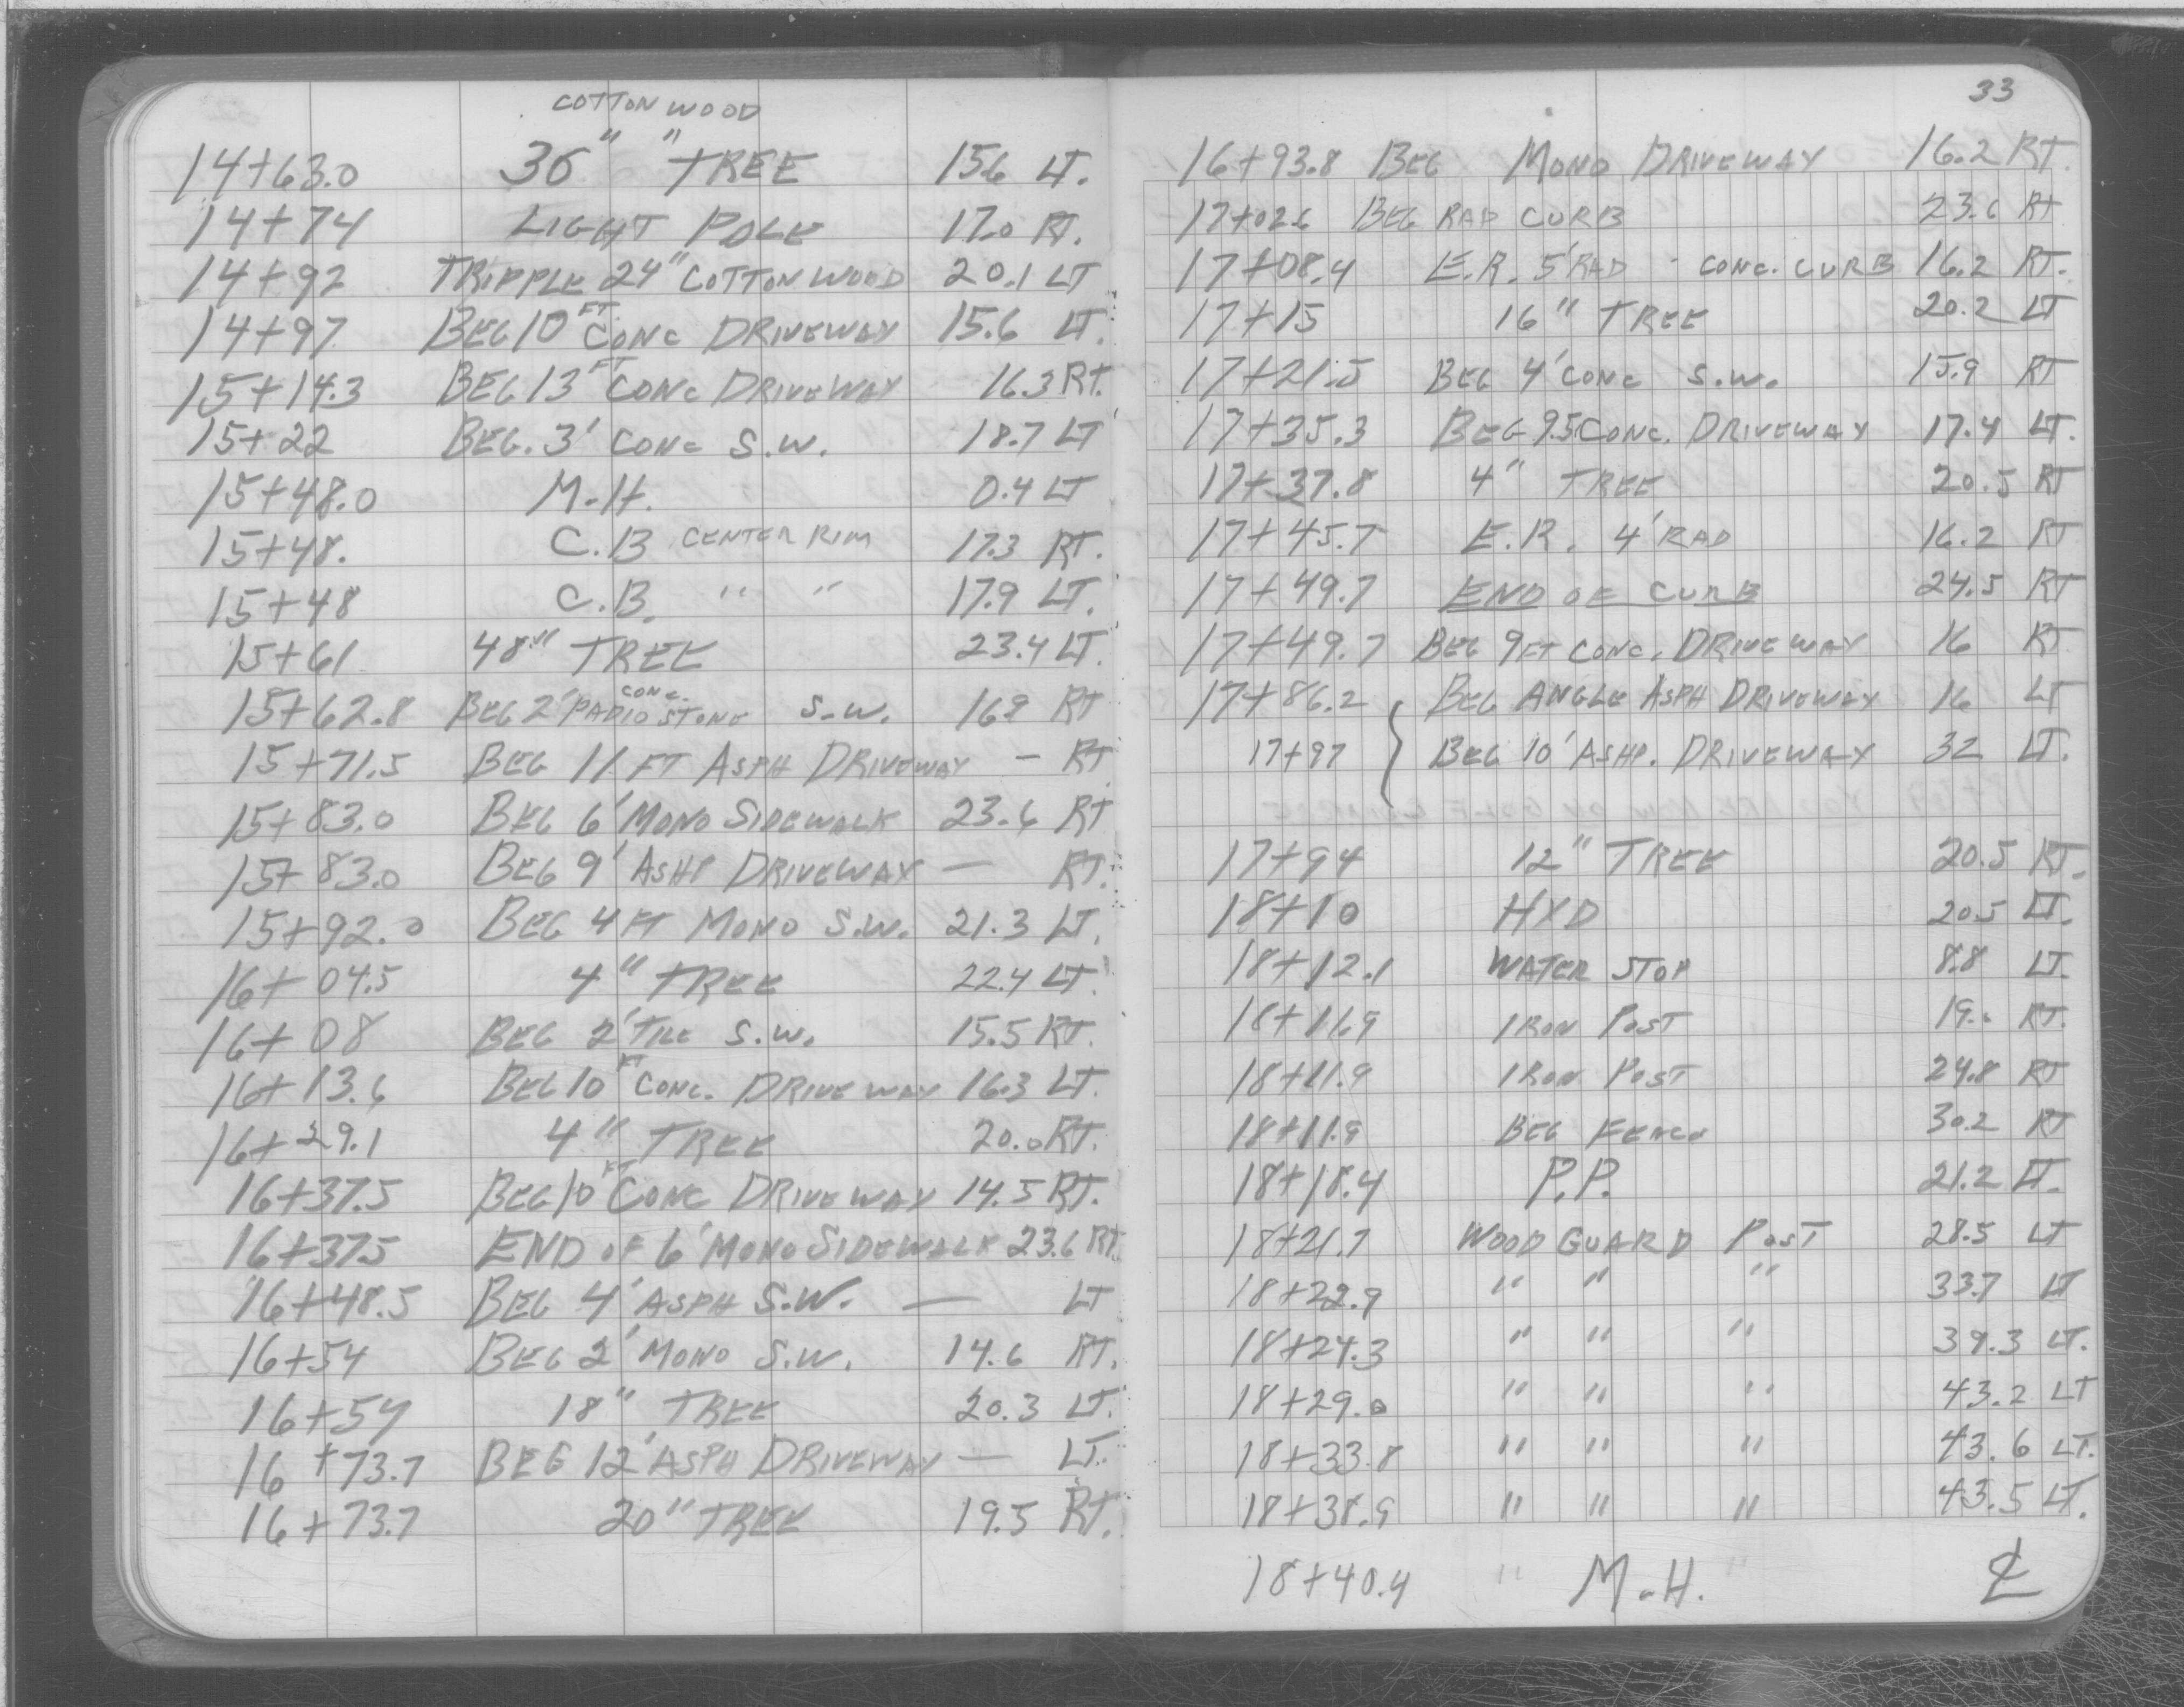 COTTON WOOD
14+63.0 36" " TREE 15.6 LT.
14+74 LIGHT POLE 17.0 RT.
14+92 TRIPPLE 24" COTTON WOOD 20.1 LT
14+97 BEG 10 FT CONC DRIVEWAY 15.6 LT.
15+14.3 BEG 13 FT CONC DRIVEWAY 16.3 RT.
15+22 BEG. 3' CONC S.W. 18.7 LT
15+48.0 M.H. 0.4 LT
15+48. C.B CENTER RIM 17.3 RT.
15+48 C.B. " " 17.9 LT.
15+61 48" TREE 23.4 LT.
15+62.8 BEG 2' CONC. PADIO STONE S.W. 168 RT
15+71.5 BEG 11 FT ASPH DRIVEWAY - RT
15+83.0 BEG 6' MONO SIDEWALK 23.6 RT
15+83.0 BEG 9' ASHP DRIVEWAY — RT.
15+92.0 BEG 4 FT MONO S.W. 21.3 LT.
16+04.5 4" TREE 22.4 LT.
16+08 BEG 2' TILE S.W. 15.5 RT.
16+13.6 BEG 10 FT CONC. DRIVEWAY 16.3 LT.
16+29.1 4" TREE 20.0 RT.
16+37.5 BEG 10 FT CONC DRIVEWAY 14.5 RT.
16+37.5 END OF 6' MONO SIDEWALK 23.6 RT.
16+48.5 BEG 4' ASPH S.W. — LT
16+54 BEG 2' MONO S.W. 14.6 RT.
16+54 18" TREE 20.3 LT.
16+73.7 BEG 12' ASPH DRIVEWAY — LT.
16+73.7 20" TREE 19.5 RT.
33
16+93.8 BEG MONO DRIVEWAY 16.2 RT.
17+02.6 BEG RAD CURB 23.6 RT
17+08.4 E.R. 5' RAD - CONC. CURB 16.2 RT.
17+15 16" TREE 20.2 LT
17+21.5 BEG 4' CONC S.W. 15.9 RT
17+35.3 BEG 9.5 CONC. DRIVEWAY 17.4 LT.
17+37.8 4" TREE 20.5 RT
17+45.7 E.R. 4' RAD 16.2 RT
17+49.7 END OF CURB 24.5 RT
17+49.7 BEG 9 FT CONC. DRIVEWAY 16 RT
17+86.2 BEG ANGLE ASPH DRIVEWAY 16 LT
17+97 BEG 10' ASHP. DRIVEWAY 32 LT.
17+94 12" TREE 20.5 RT.
18+10 HYD 20.5 LT.
18+12.1 WATER STOP 8.8 LT.
18+11.9 IRON POST 19. RT.
18+11.9 IRON POST 24.8 RT
18+11.9 BEG FENCE 30.2 RT
18+18.4 P.P. 21.2 LT.
18+21.7 WOOD GUARD POST 28.5 LT
18+22.9 " " " 33.7 LT
18+24.3 " " " 39.3 LT.
18+29.0 " " " 43.2 LT
18+33.8 " " " 43.6 LT.
18+38.9 " " " 43.5 LT.
18+40.4 " M.H. ℄